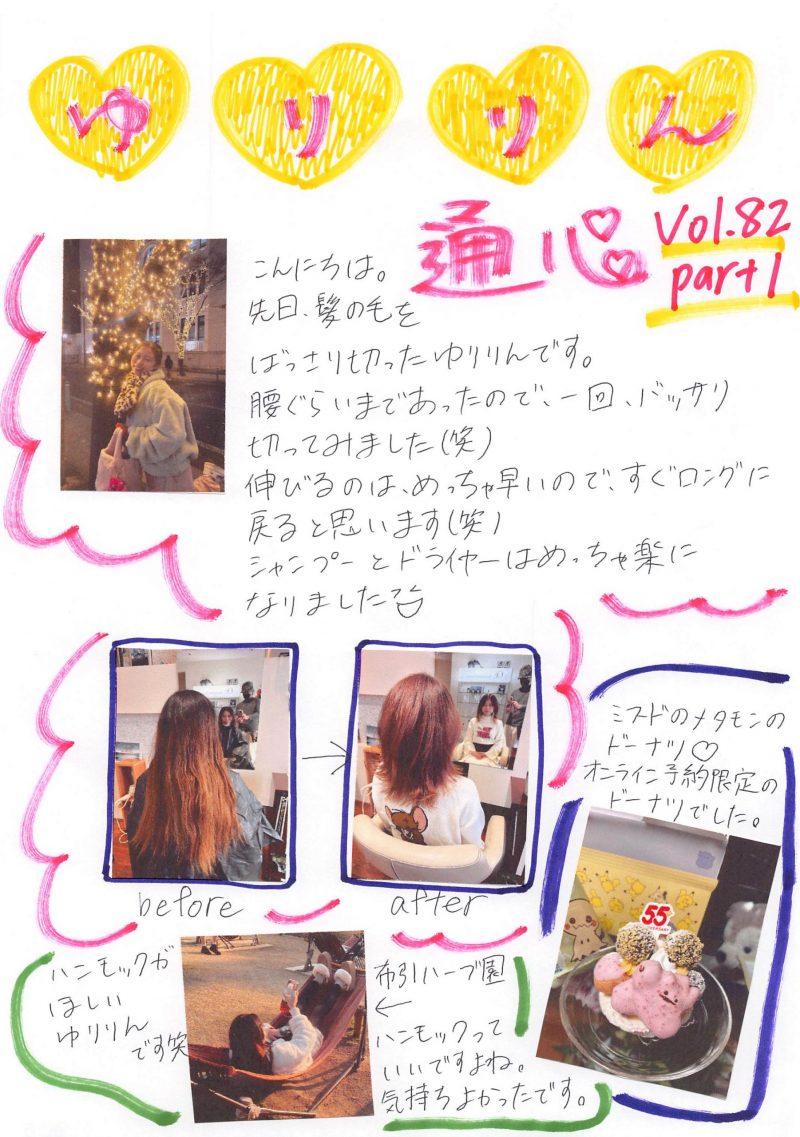 ゆりりん
通心
Vol.82
part1
こんにちは。
先日、髪の毛を
ばっさり切ったゆりりんです。
腰ぐらいまであったので、一回、バッサリ
切ってみました(笑)
伸びるのは、めっちゃ早いので、すぐロングに
戻ると思います(笑)
シャンプーとドライヤーはめっちゃ楽に
なりました
before
after
ミスドのメタモンの
ドーナツ♡
オンライン予約限定の
ドーナツでした。
55
ハンモックが
ほしい
ゆりりん
です笑
布引ハーブ園
←
ハンモックって
いいですよね。
気持ちよかったです。